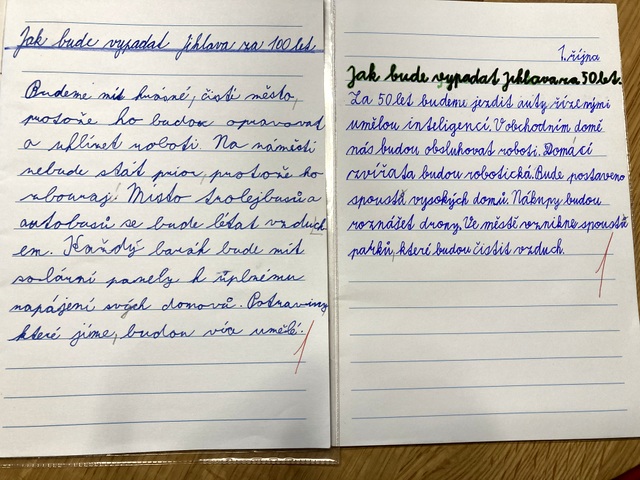 Jak bude vypadat Jihlava za 100 let
Budeme mít krásné, čisté město,
protože ho budou opravovat
a uklízet roboti. Na náměstí
nebude stát prior, protože ho
zbourají. Místo trolejbusů a
autobusů se bude létat vzduch
em. Každý barák bude mít
solární panely k úplnému
napájení svých domovů. Potraviny,
které jíme, budou více umělé.
1
1. října
Jak bude vypadat Jihlava za 50 let.
Za 50 let budeme jezdit auty řízenými
umělou inteligencí. V obchodním domě
nás budou obsluhovat roboti. Domácí
zvířata budou robotická. Bude postaveno
spoustu vysokých domů. Nákupy budou
roznášet drony. Ve městě vznikne spousta
parků, které budou čistit vzduch.
1